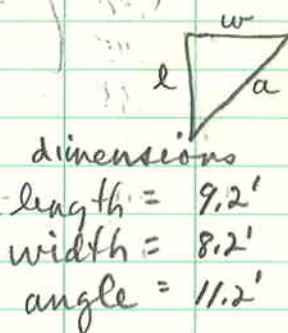 w
l
a
dimensions
length = 9.2'
width = 8.2'
angle = 11.2'